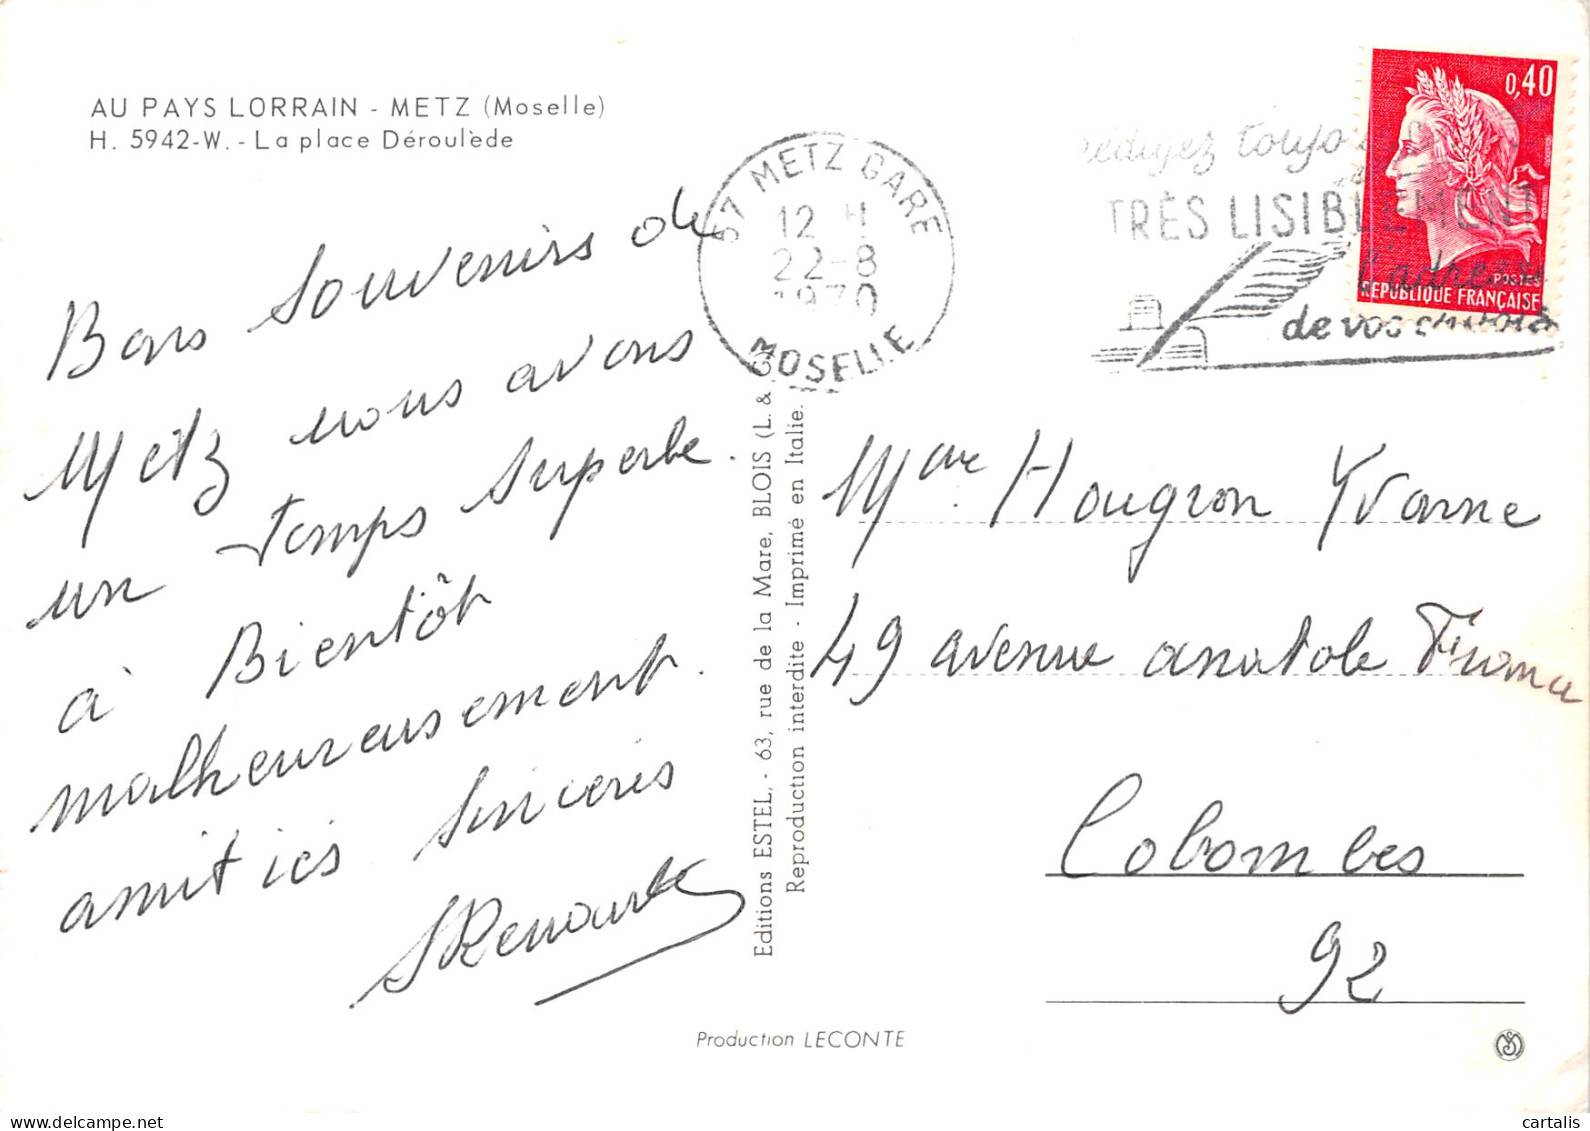 AU PAYS LORRAIN - METZ (Moselle)
H. 5942-W. - La place Déroulède
Bons Souvenirs de
Metz nous avons
un temps superbe.
à Bientôt
malheureusement.
amitiés sincères
57 METZ GARE
12 H
22-8
1970
MOSELLE
rédigez toujours
TRÈS LISIBLEMENT
l'adresse
de vos envois
0,40
POSTES
REPUBLIQUE FRANÇAISE
Editions ESTEL, - 63, rue de la Mare, BLOIS (L. &
Reproduction interdite - Imprimé en Italie.
Mme Hougron Yvonne
49 avenue anatole France
Colombes
92
Production LECONTE
cartalis
delcampe.net